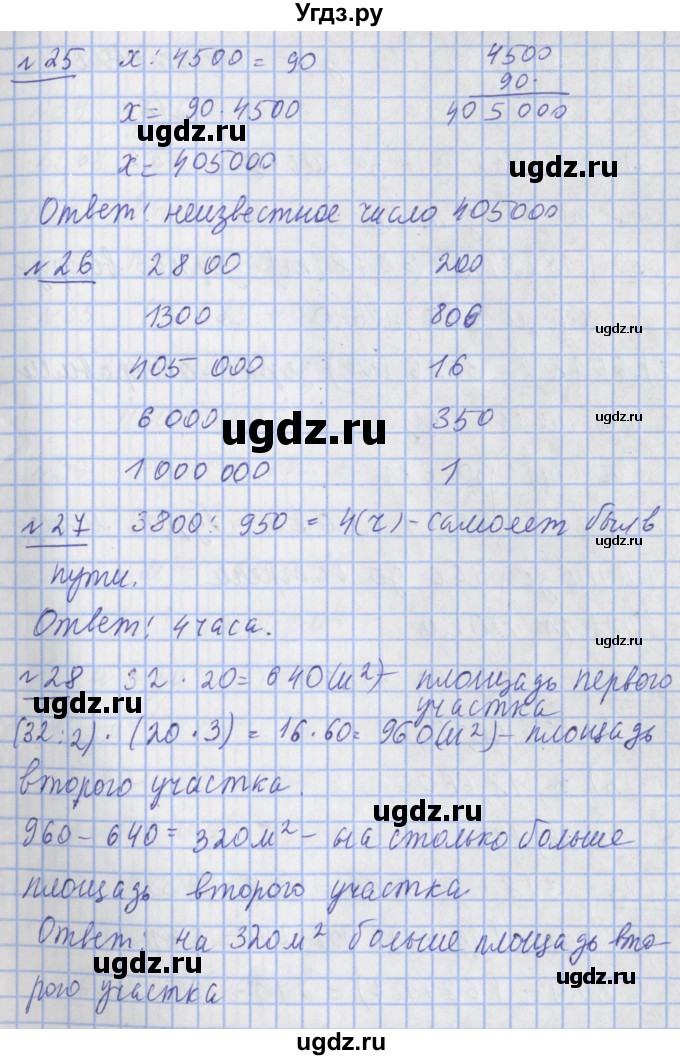 Угдз.ру
№25 x : 4500 = 90 4500
x = 90 · 4500 90
ugdz.ru 405 000
ugdz.ru
x = 405000
Ответ: неизвестное число 405000
№26 2800 200
1300 806
ugdz.ru
405 000 16
6 000 350
ugdz.ru ugdz.ru
1 000 000 1
№27 3800 : 950 = 4(ч) – самолет был в
пути.
Ответ: 4 часа.
ugdz.ru
№28 32 · 20 = 640 (м²) – площадь первого
ugdz.ru участка
(32 : 2) · (20 · 3) = 16 · 60 = 960 (м²) – площадь
второго участка.
ugdz.ru
960 – 640 = 320 м² – на столько больше
ugdz.ru
площадь второго участка
Ответ: на 320 м² больше площадь вто-
ugdz.ru ugdz.ru
рого участка
ugdz.ru